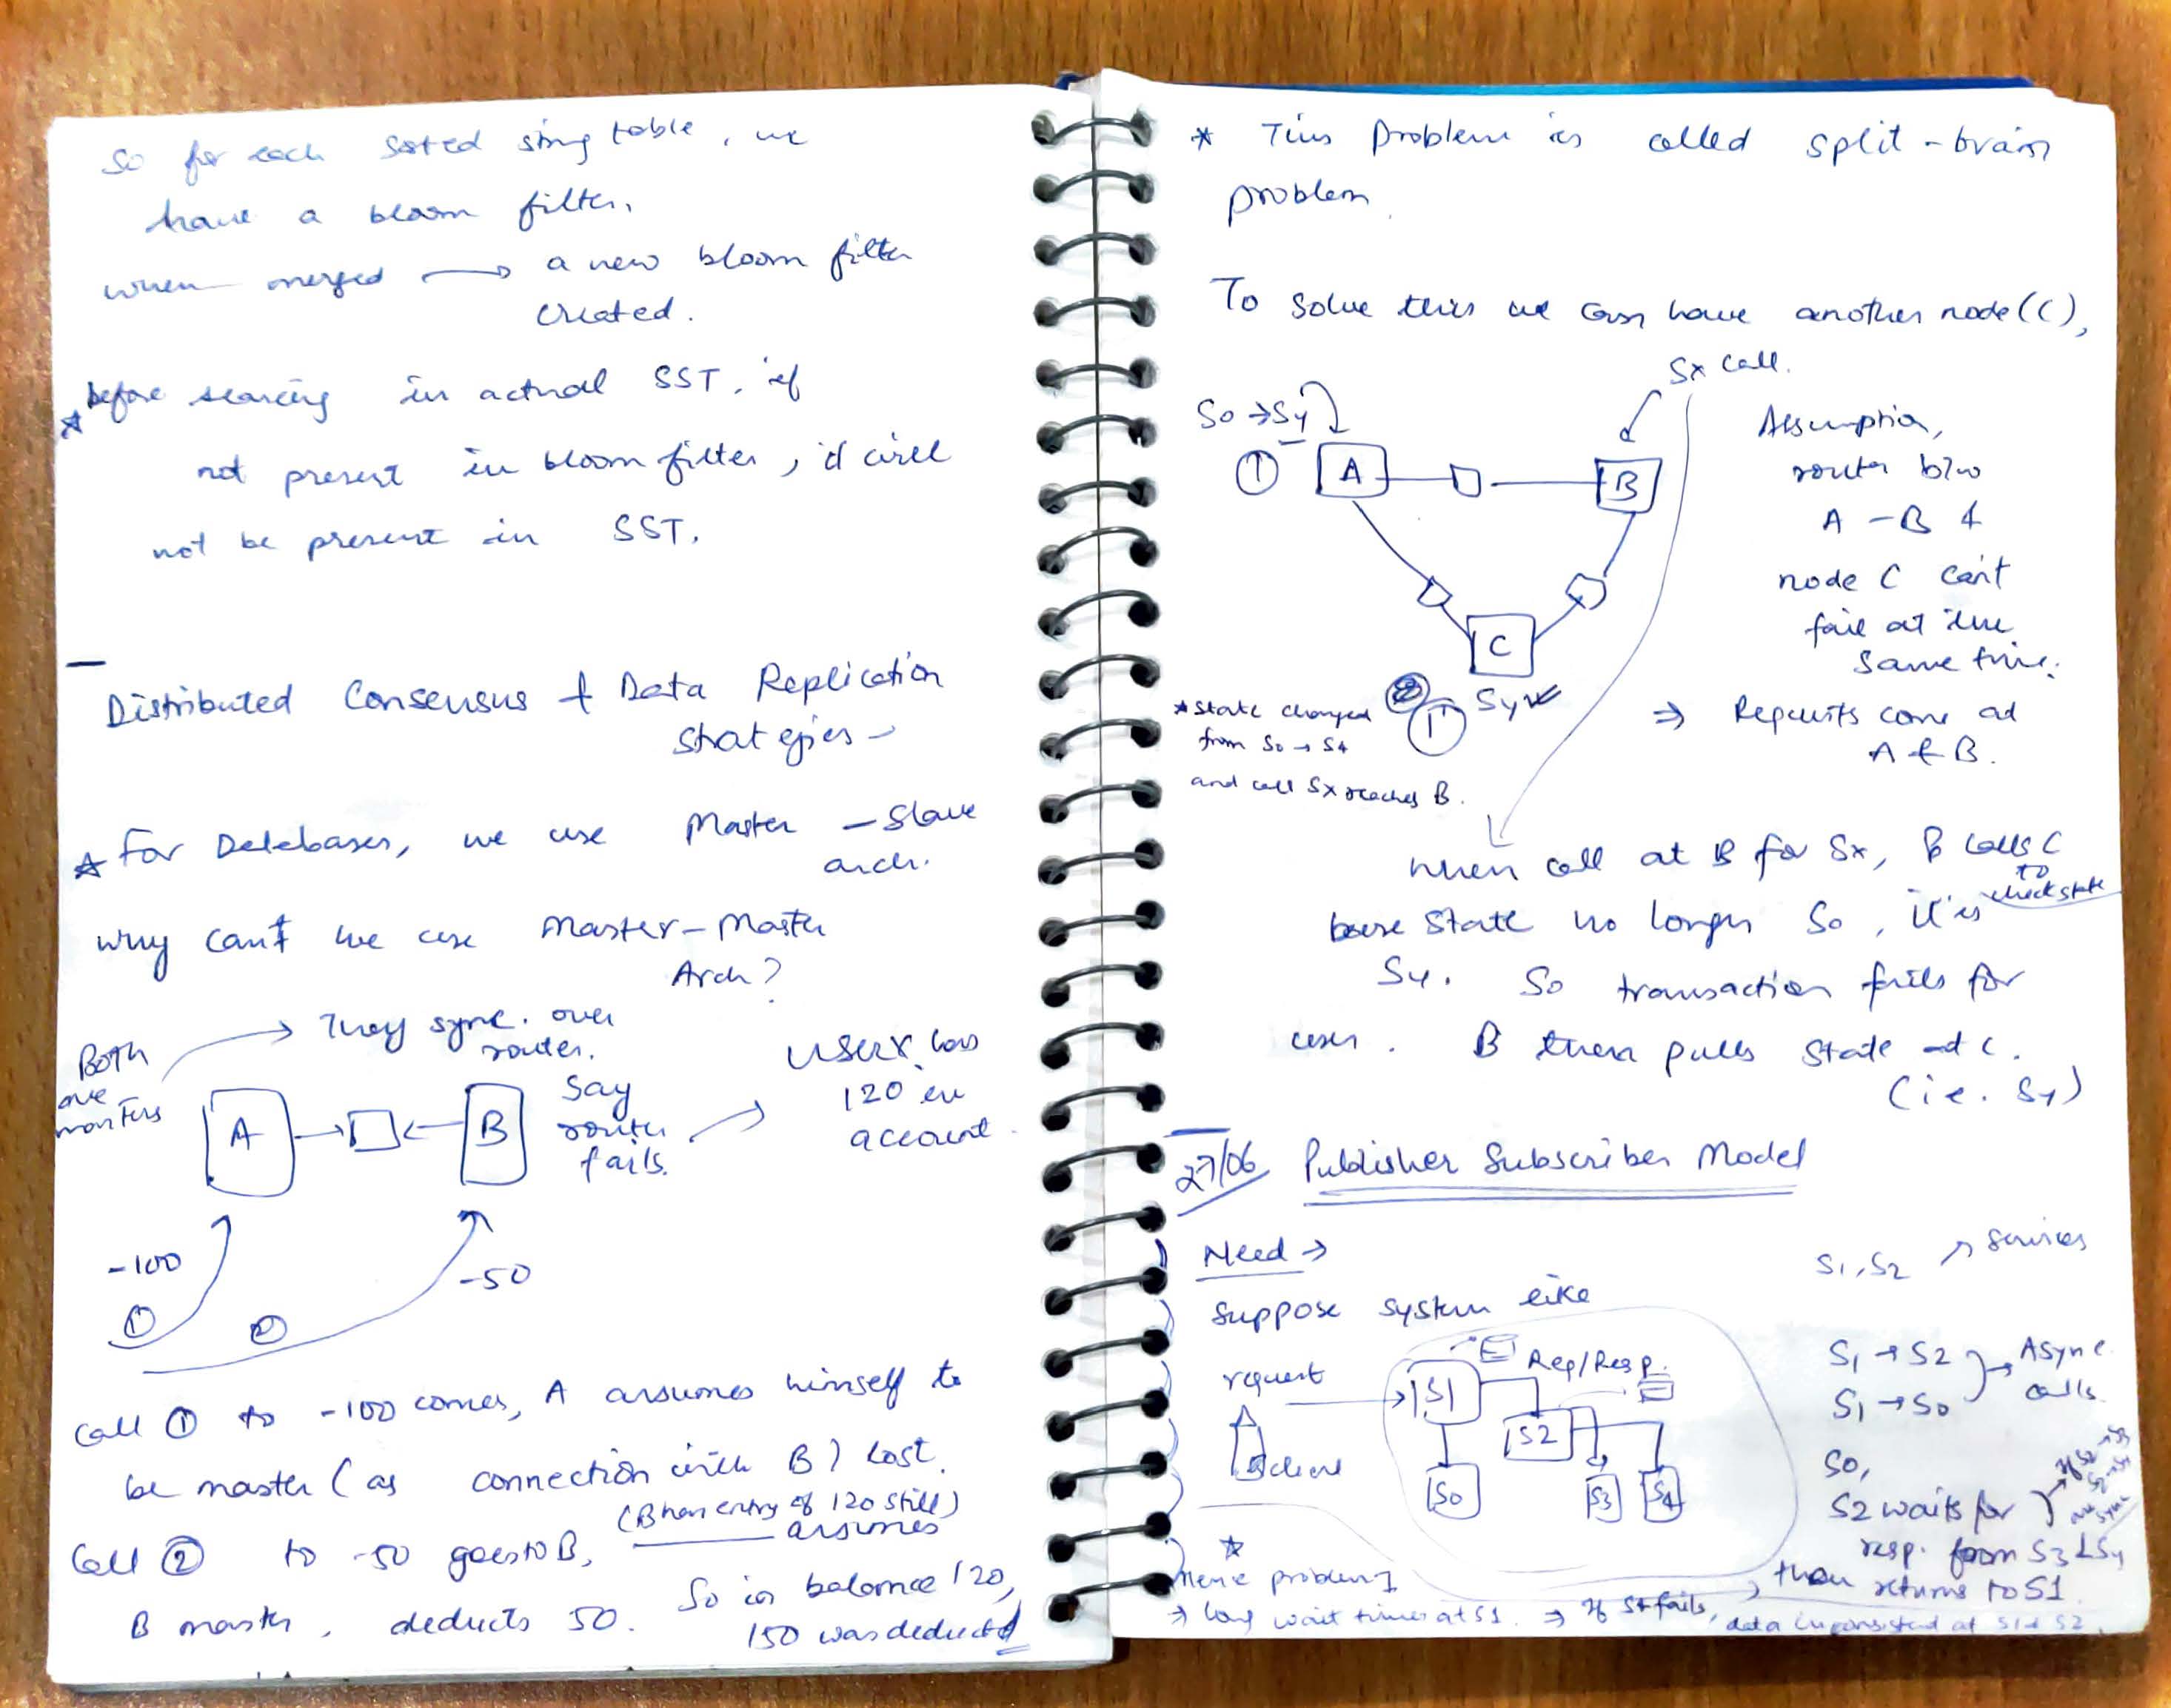 So for each sorted string table, we
have a bloom filter.
when merged → a new bloom filter
created.
* before searcing in actual SST, if
not present in bloom filter, it will
not be present in SST.
Distributed Consensus & Data Replication
Strategies -
* For Databases, we use Master - Slave
arch.
why can't we use Master-Master
Arch?
Both are masters
→ They sync. over
router.
A
B
Say
router
fails.
→ user has
120 in
account.
-100
①
②
-50
Call ① to -100 comes, A assumes himself to
be master (as connection with B) lost.
(B has entry of 120 still)
Call ② to -50 goes to B, assumes
B master, deducts 50. So in balance 120,
150 was deducted
* This Problem is called split-brain
problem.
To solve this we can have another node (C),
Sx call.
S0 → Sy
①
A
B
C
Sync
Assumption,
router b/w
A - B &
node C can't
fail at the
same time.
⇒ Requests come at
A & B.
* State changed
from S0 → Sy
and call Sx reaches B.
when call at B for Sx, B calls C
to check state
state no longer S0, it is
Sy. So transaction fails for
user. B then pulls state at C.
(i.e. Sy)
27/06 Publisher Subscriber Model
Need →
S1, S2 → services
Suppose system like
request
client
Req/Resp.
S1
S2
S0
S3
S4
S1 → S2
S1 → S0
→ Async
calls.
So,
S2 waits for
resp. from S3 & S4
then returns to S1.
* Here problem,
→ long wait times at S1. ⇒ If S4 fails, data inconsistent at S1 & S2.